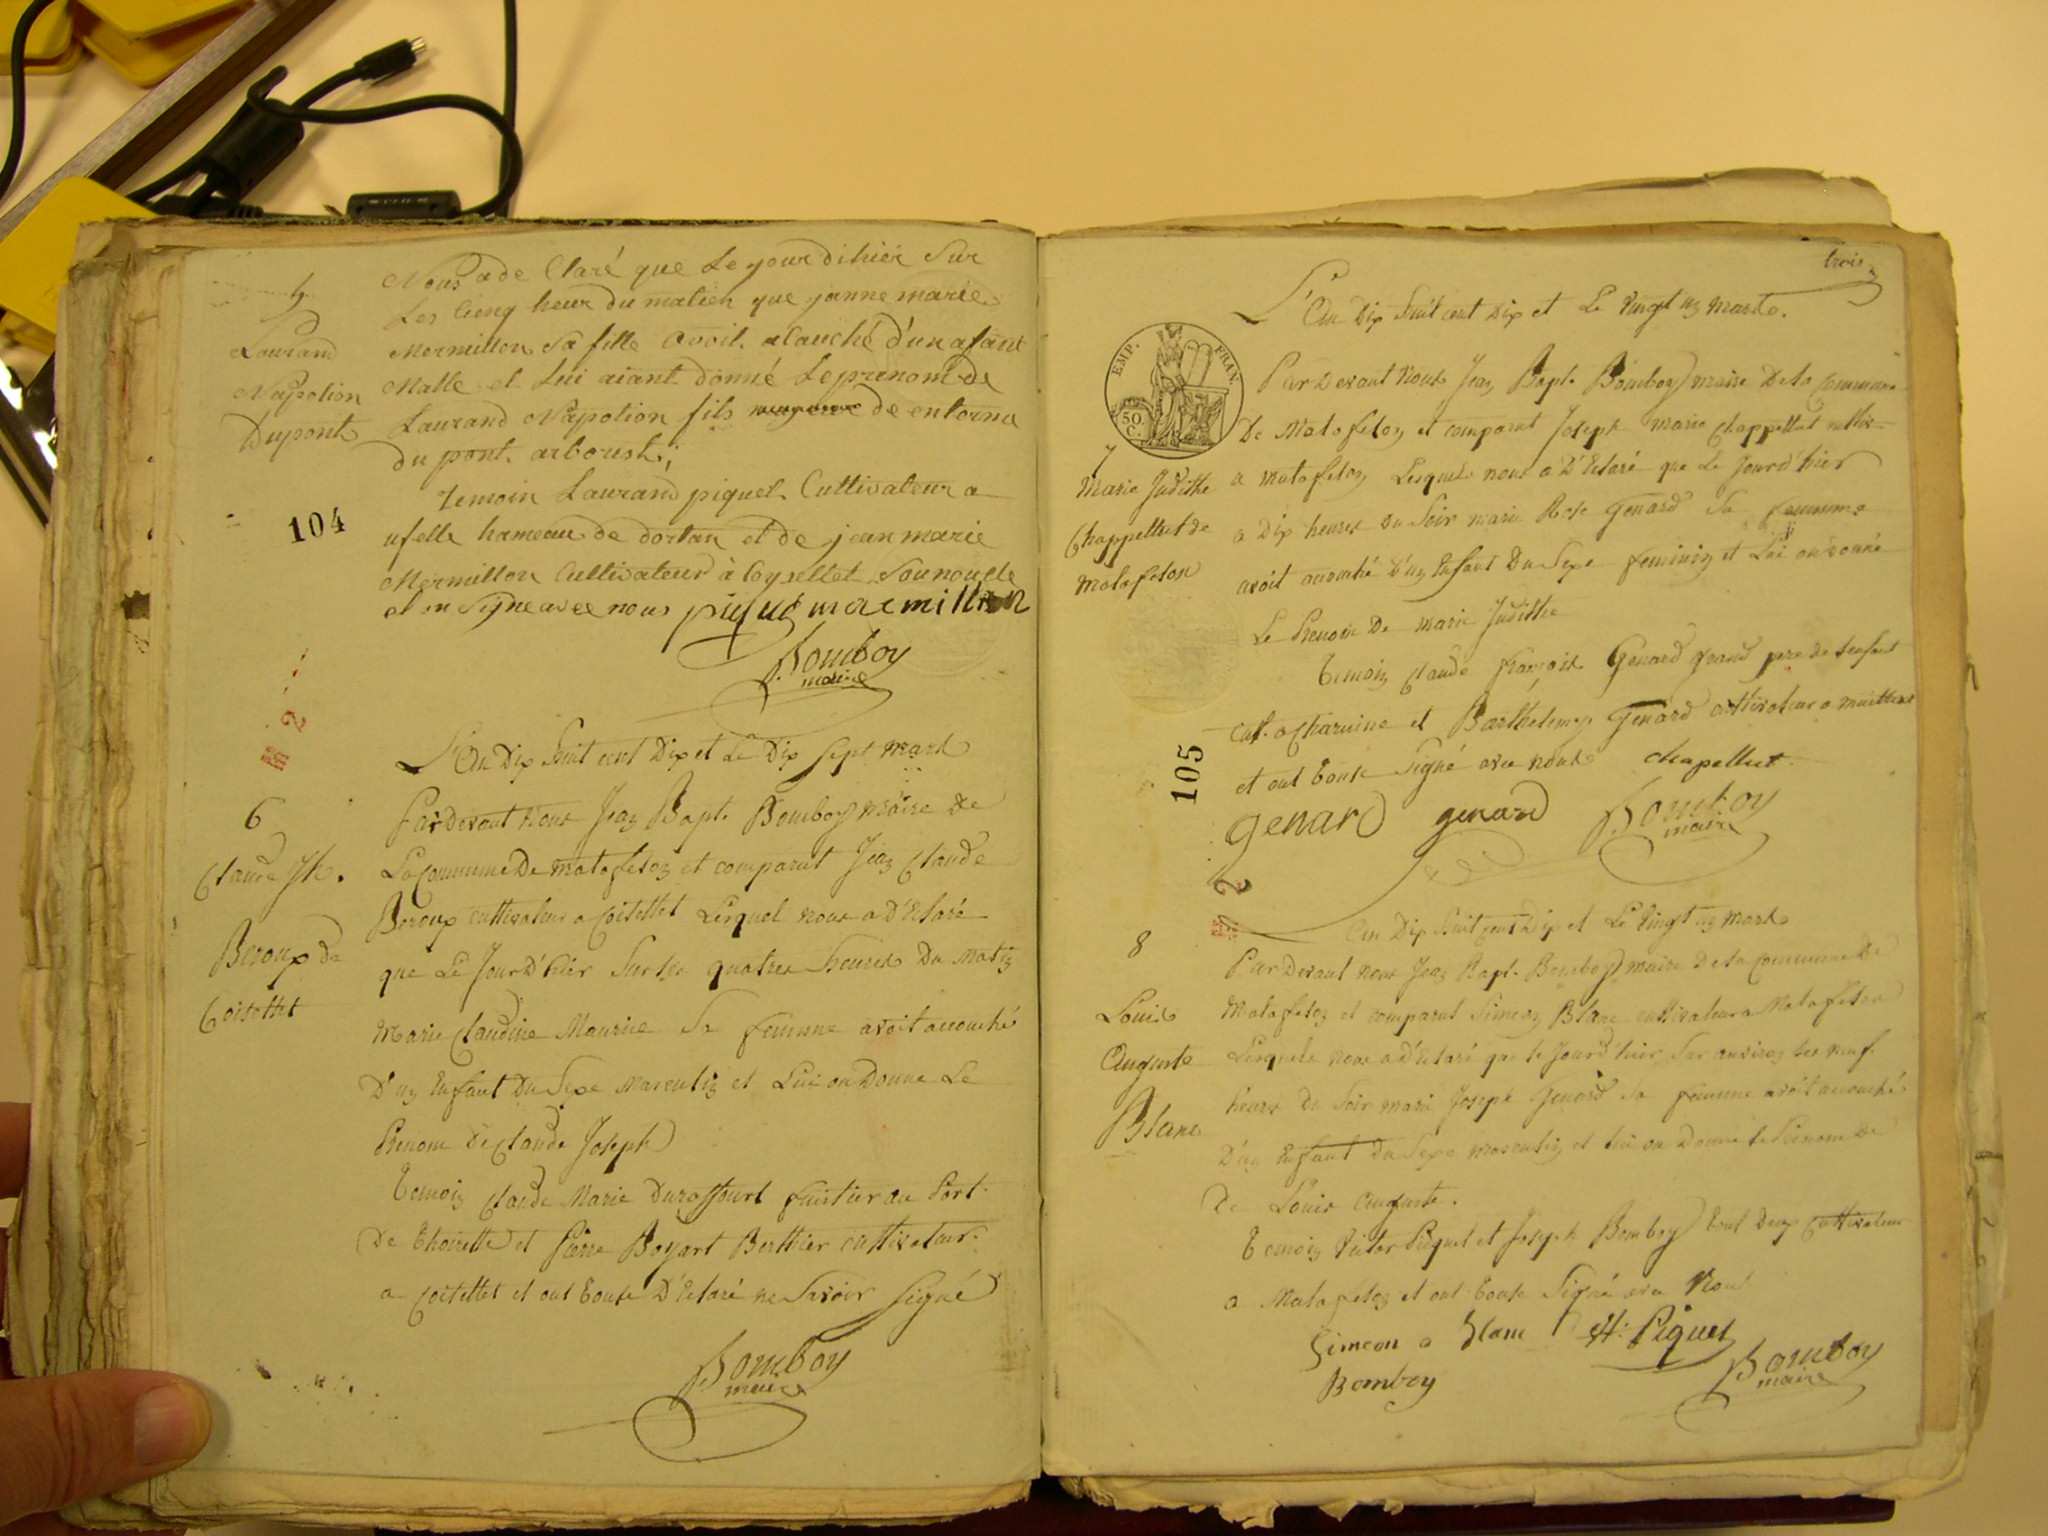 5
Laurand
Napolion
Dupont
104
Nous a de Claré que Le jour dihier Sur
Les Cienq heur du matien que janne marie
Mermillon Sa fille avoit alauché d'un afant
Malle et Lui aiant donné Leprenom de
Laurand Napolion fils de
du pont arboust;
Temoin Laurand piquet Cultivateur a
uffelle hameau de dortan et de jean marie
Mermillon Cultivateur à Coysellet
et on Signe avec nous piquet mermillion
Bomboy
maire
6
Claude Jh.
Beroux de
Coisellet
L'An Dix huit cent Dix et Le Dix Sept mars
Par Devant Nous Jean Bapt. Bomboy maire de
La Commune De matafelon et comparut Jean Claude
Beroux cultivateur a Coisellet Lequel nous a D'Claré
que Le Jour D'hier Sur les quatres heures Du Matin
Marie Claudine Maurice Sa femme avoit acouché
D'un Enfant Du Sexe Masculin et Lui on Donne Le
Prenom De Claude Joseph
Temoin Claude Marie Duraffourt au Port
De Thoirette et Pierre Boyart Berthier cultivateur
a Coisellet et ont toute D'Claré ne Savoir Signé
Bomboy
maire
trois
EMP. FRAN.
50
C.
L'An Dix huit cent Dix et Le vingt un Mars.
7
Marie Judithe
Chappellut de
Matafelon
105
Par Devant Nous Jean Bapt. Bomboy maire De la Commune
De Matafelon et comparut Joseph Marie Chappellut
a matafelon Lequel nous a D'Claré que Le Jourd'hier
a Dix heures du Soir marie Rose Genard Sa femme
avoit acouché D'un Enfant Du Sexe feminin et Lui on donné
Le Prenom De Marie Judithe
Temoin Claude françois Genard grand pere de Lenfant
cult. a Charvine et Barthelemy Genard cultivateur a
et ont toute Signé avec nous chapellut
Genard genard Bomboy
maire
2
8
Louis
Auguste
Blanc
An Dix huit cent Dix et Le vingt un Mars
Par Devant nous Jean Bapt. Bomboy maire De La Commune De
Matafelon et comparut Simeon Blanc cultivateur a Matafelon
Lequele nous a d'Claré que le Jourd'hier Sur environ les neuf
heures du Soir marie Joseph Genard Sa femme avoit acouché
D'un Enfant du Sexe masculin et lui on Donne le Prenom De
De Louis Auguste.
Temoin Victor Piquet et Joseph Bomboy tout Deux Cultivateur
a Matafelon et ont toute Signé avec Nous
Simeon a blanc Piquet
Bomboy Bomboy
maire